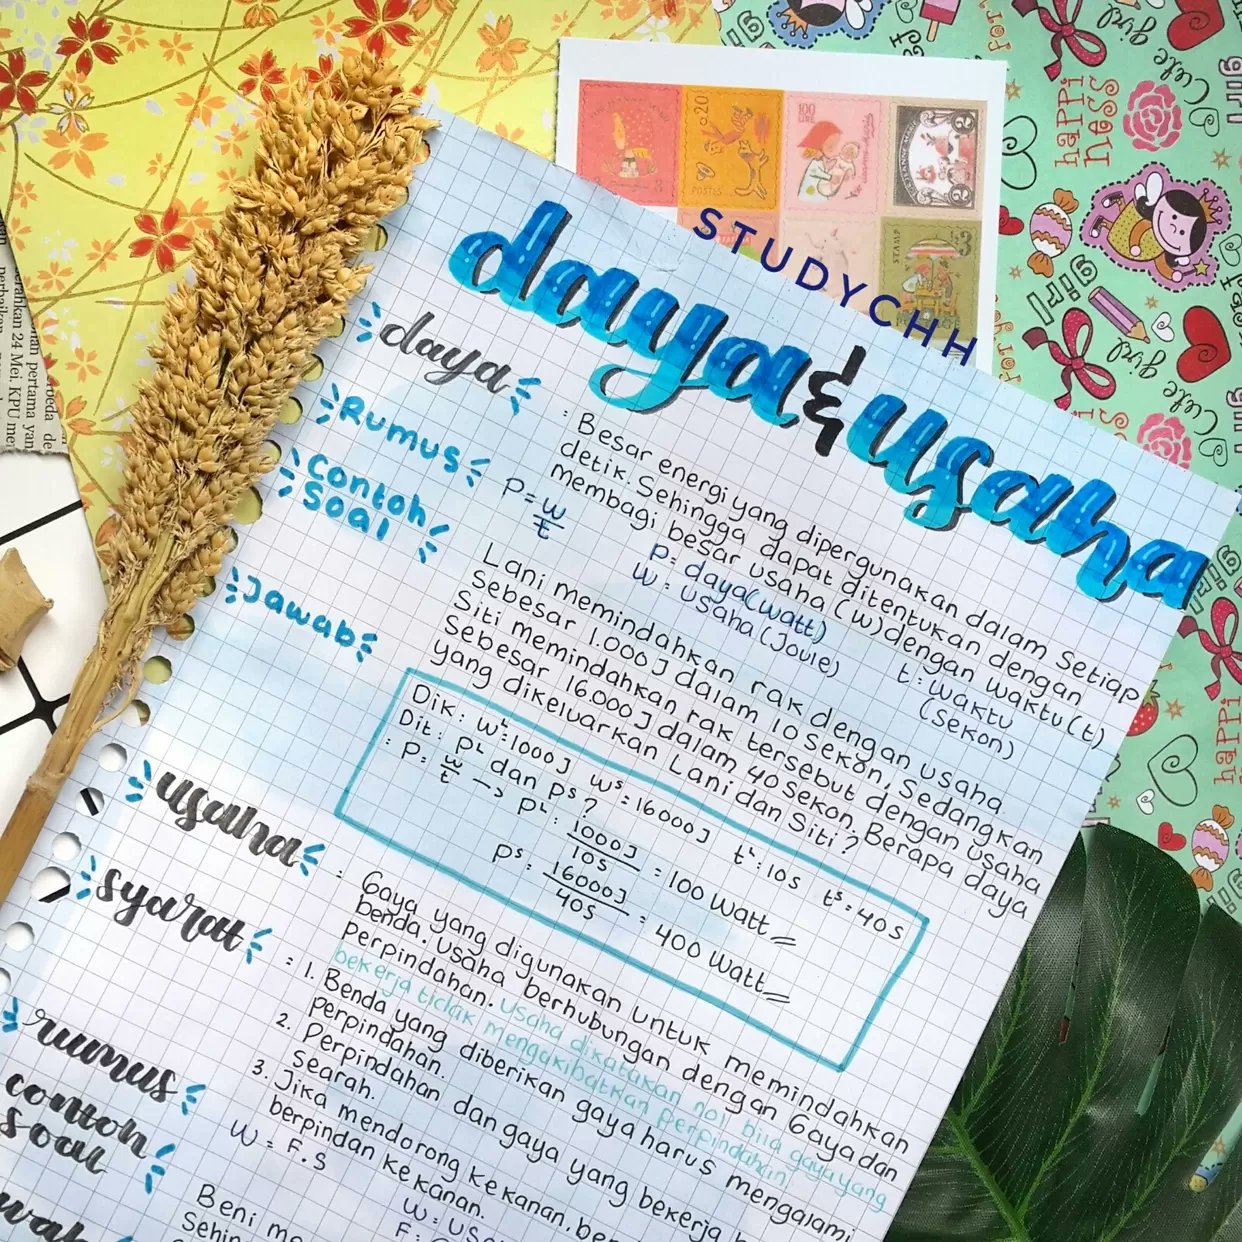 STUDYCHH
daya & usaha
daya
: Besar energi yang dipergunakan dalam setiap
detik. Sehingga dapat ditentukan dengan
membagi besar usaha (W) dengan waktu (t)
Rumus
P = W
t
P = daya (watt)
W = usaha (Joule)
t = waktu
(sekon)
Contoh
Soal
Lani memindahkan rak dengan usaha
Sebesar 1.000 J dalam 10 Sekon, Sedangkan
Siti memindahkan rak tersebut dengan usaha
Sebesar 16.000 J dalam 40 Sekon. Berapa daya
yang dikeluarkan Lani dan Siti?
Jawab
Dik: WL = 1000 J WS = 16000 J tL = 10s tS = 40s
Dit: PL dan PS?
: P = W
t
→ PL = 1000 J
10s
= 100 watt
PS = 16000 J
40s
= 400 watt
usaha
: Gaya yang digunakan untuk memindahkan
benda. Usaha berhubungan dengan Gaya dan
perpindahan. Usaha dikatakan nol bila gaya yang
bekerja tidak mengakibatkan perpindahan
syarat
: 1. Benda yang diberikan gaya harus mengalami
perpindahan.
2. Perpindahan dan gaya yang bekerja
searah.
3. Jika mendorong ke kanan.
berpindan ke kanan.
rumus
W = F.S
contoh
soal
Beni
haPPi
ness
Cute girl
girl
haPPi
STAMP
POSTES
100
erahkan 24 Mei. KPU